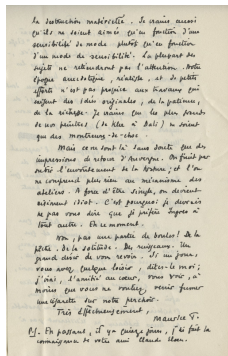 la destruction matérielle. Je crains aussi
qu'ils ne soient aimés qu'en fonction d'une
sensibilité de mode plutôt qu'en fonction
d'un mode de sensibilité. La plupart des
sujets ne retiendront pas l'attention. Notre
époque anecdotique, réaliste, et de petits
efforts n'est pas propice aux travaux qui
exigent des idées originales, de la patience,
de la recherche. Je crains que les plus grands
de nos peintres (de Klee à Dali) ne soient
que des montreurs de choc.
Mais ce ne sont là sans doute que des
impressions de retour d'Auvergne. On finit par
subir l'envoûtement de la nature, et l'on
ne comprend plus rien au mécanisme des
ateliers. A force d'être simple, on devient
aisément idiot. C'est pourquoi je devrais
ne pas vous dire que je préfère Ingres à
tout autre. En ce moment.
Non, pas une partie de boules! De la
pêche. De la solitude. Des ruisseaux. Un
grand désir de vous revoir. Si un jour,
vous avez quelque loisir, dites-le moi;
j'irai, l'amitié au cœur, vous voir, à
moins que vous ne vouliez venir fumer
une cigarette sur notre perchoir.
Très affectueusement,
Maurice T.
P.S. En passant, il y a quinze jours, j'ai fait la
connaissance de votre ami Claude